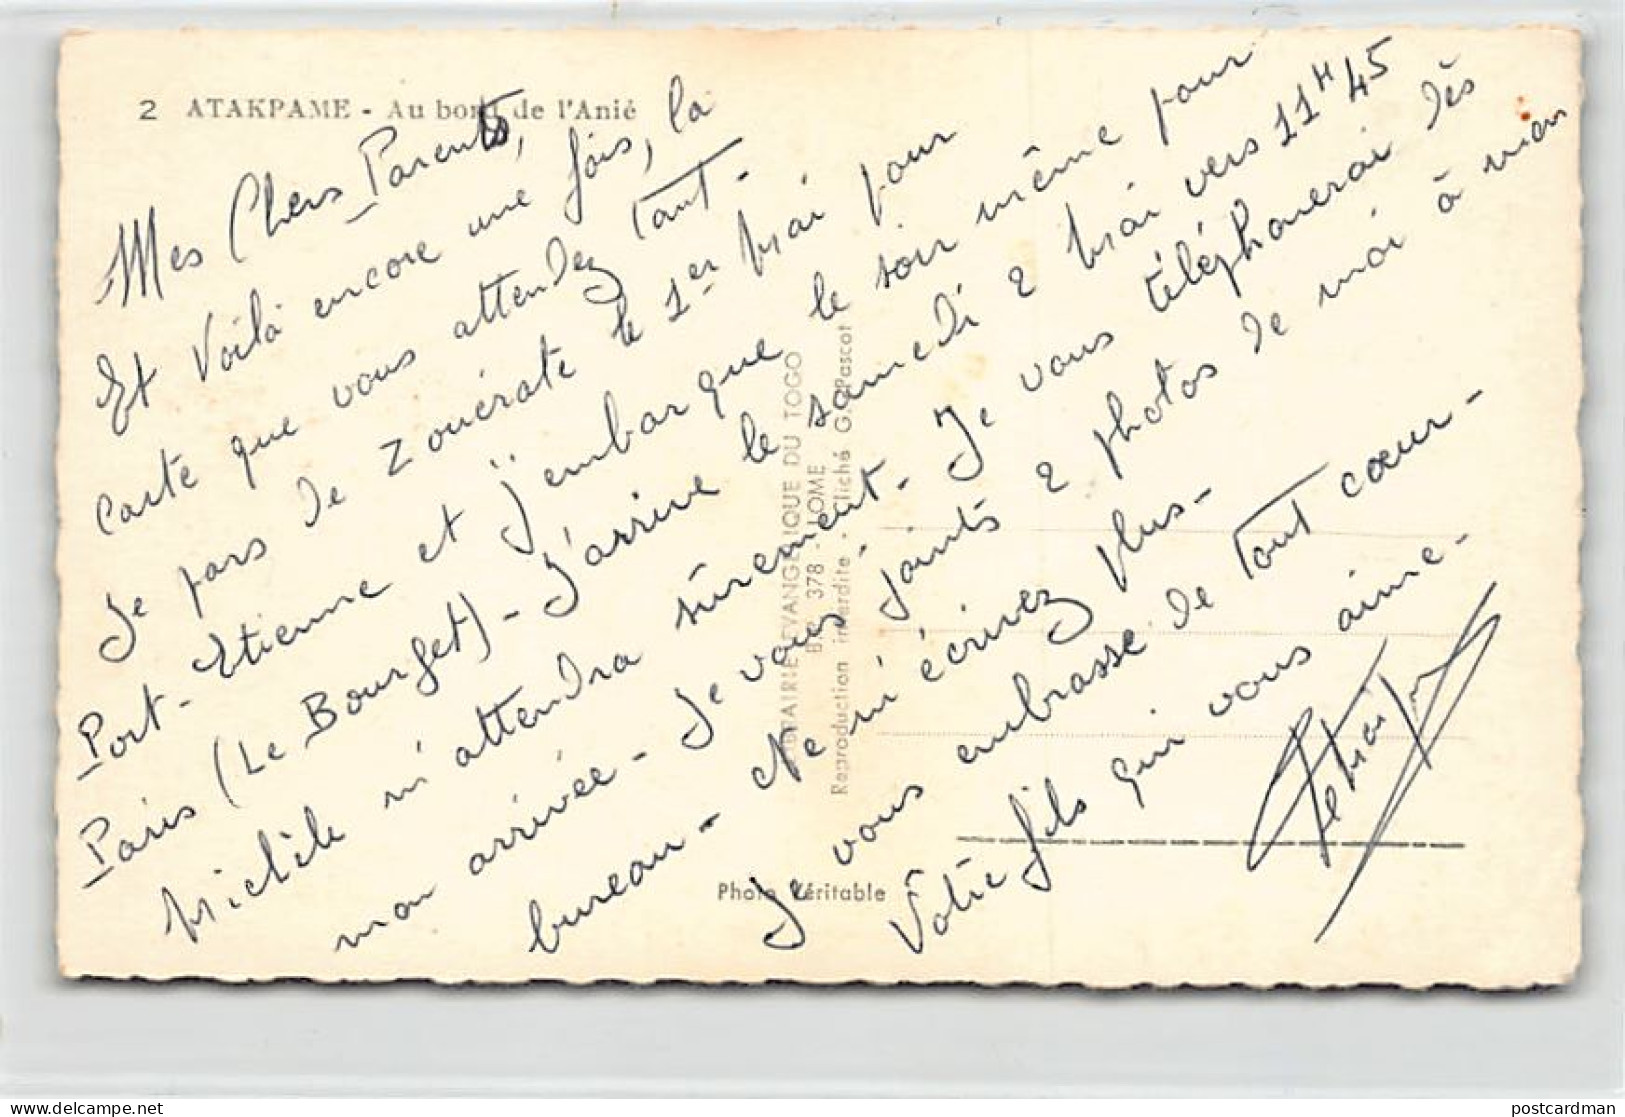 2 ATAKPAME - Au bord de l'Anié
Mes Chers Parents,
Et Voilà encore une fois, la
carte que vous attendez tant.
Je pars de Zouérate le 1er Mai pour
Port-Etienne et j'embarque le soir même pour
Paris (Le Bourget) - J'arrive le samedi 2 Mai vers 11H45
Michèle m'attendra sûrement - Je vous téléphonerai dès
mon arrivée - Je vous joints 2 photos de moi à mon
bureau - Ne m'écrivez plus -
Je vous embrasse de Tout cœur -
Votre fils qui vous aime -
LIBRAIRIE EVANGELIQUE DU TOGO
B.P. 378 - LOME
Reproduction interdite - Cliché G. Pascot
Photo Véritable
postcardman